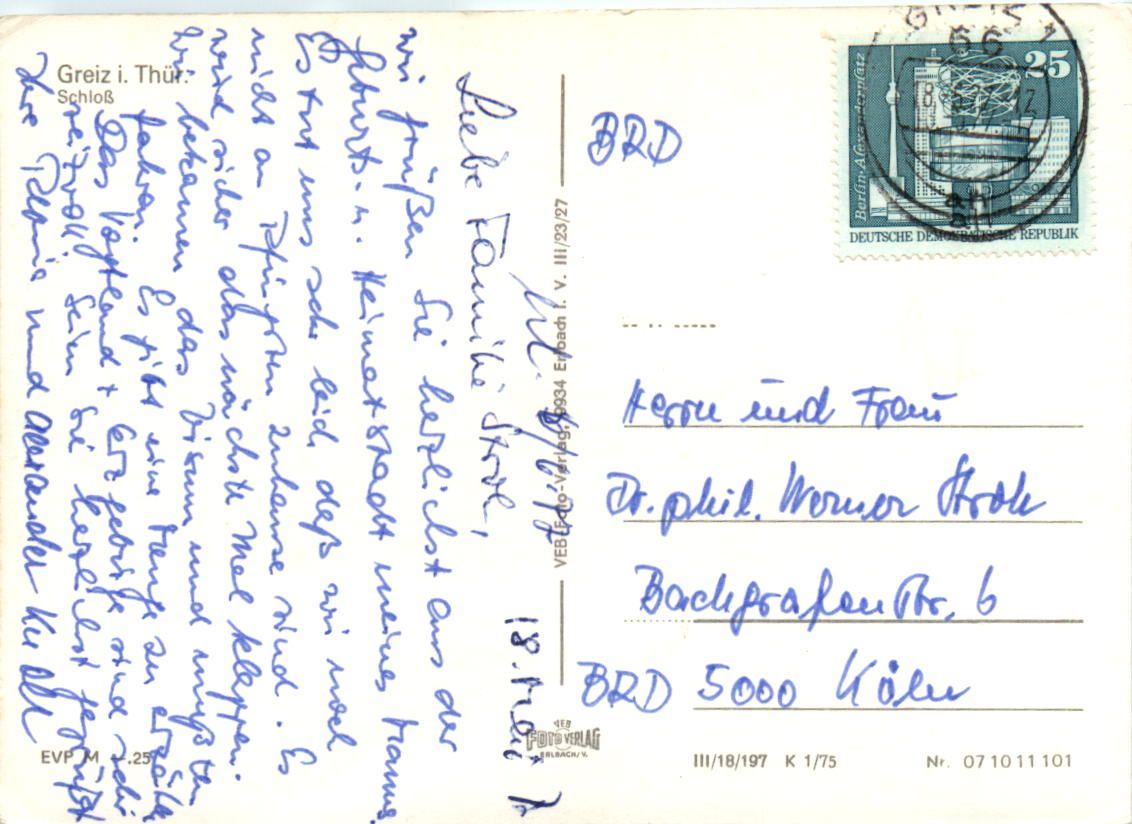 Greiz i. Thür.
Schloß
18. Mai 7
Liebe Familie Stroh,
wir grüßen Sie herzlichst aus der
Geburts- u. Heimatstadt meines Mannes.
Es tut uns sehr leid, daß wir noch
nicht an Pfingsten zuhause sind. Es
wird sicher das nächste Mal klappen.
Wir bekamen das Visum und mußten
fahren. Es gibt eine Menge zu erzählen
Das Vogtland + Erzgebirge sind sehr
reizvoll. Seien Sie herzlichst gegrüßt
Ihre und Alexander
EVP M -.25
VEB Foto-Verlag, 9934 Erlbach i. V. III/23/27
VEB
FOTO VERLAG
ERLBACH/V.
BRD
GREIZ 1
66
ah
Berlin-Alexanderplatz
25
DEUTSCHE DEMOKRATISCHE REPUBLIK
Herrn und Frau
Dr. phil. Werner Stroh
Bachgrafenstr. 6
BRD 5000 Köln
III/18/197 K 1/75
Nr. 07 10 11 101